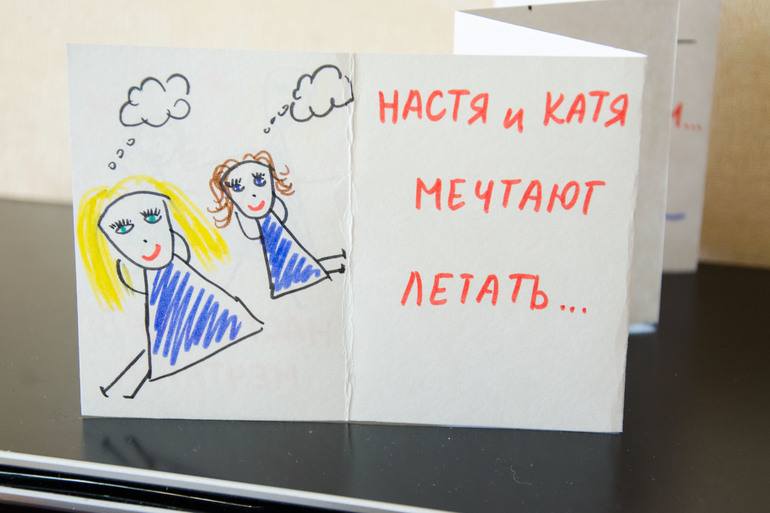 НАСТЯ и КАТЯ
МЕЧТАЮТ
ЛЕТАТЬ...